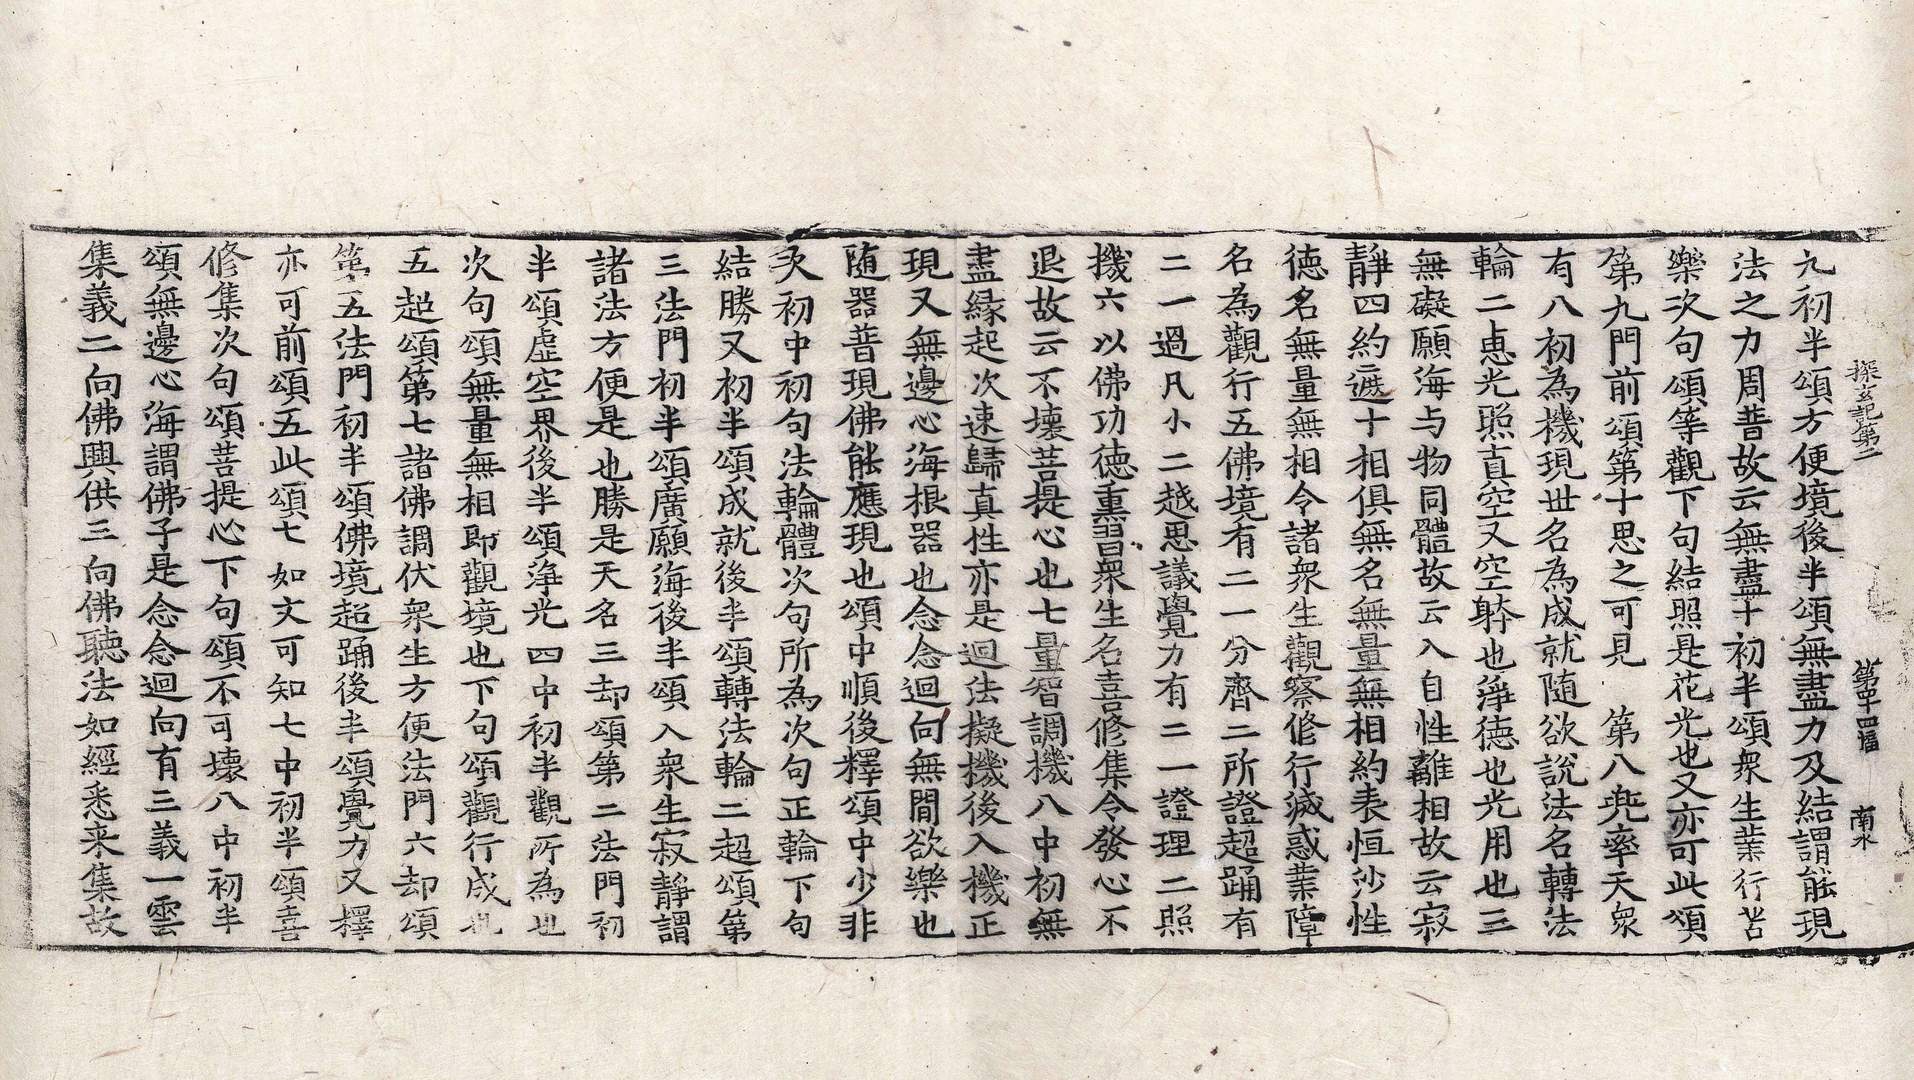 探玄記第二 第四十四幅 南水
九初半頌方便境後半頌無盡力及結謂能現
法之力周普故云無盡十初半頌衆生業行苦
樂次句頌等觀下句結照是花光也又亦可此頌
第九門前頌第十思之可見 第八兠率天衆
有八初為機現世名為成就随欲說法名轉法
輪二恵光照真空又空躰也淨徳也光用也三
無礙願海与物同體故云入自性離相故云寂
靜四約遮十相俱無名無量無相約表恒沙性
徳名無量無相令諸衆生觀察修行滅惑業障
名為觀行五佛境有二一分齊二所證超踊有
二一過凡小二越思議覺力有二一證理二照
機六以佛功徳熏習衆生名喜修集令發心不
退故云不壞菩提心也七量智調機八中初無
盡縁起次速歸真性亦是迴法擬機後入機正
現又無邊心海根器也念念迴向無間欲樂也
随器普現佛能應現也頌中順後釋頌中少非
次初中初句法輪體次句所為次句正輪下句
結勝又初半頌成就後半頌轉法輪二超頌第
三法門初半頌廣願海後半頌入衆生寂靜謂
諸法方便是也勝是天名三却頌第二法門初
半頌虛空界後半頌淨光四中初半觀所為也
次句頌無量無相即觀境也下句頌觀行成也
五超頌第七諸佛調伏衆生方便法門六却頌
第五法門初半頌佛境超踊後半頌覺力又釋
亦可前頌五此頌七如文可知七中初半頌喜
修集次句頌菩提心下句頌不可壞八中初半
頌無邊心海謂佛子是念念迴向有三義一雲
集義二向佛興供三向佛聽法如經悉来集故